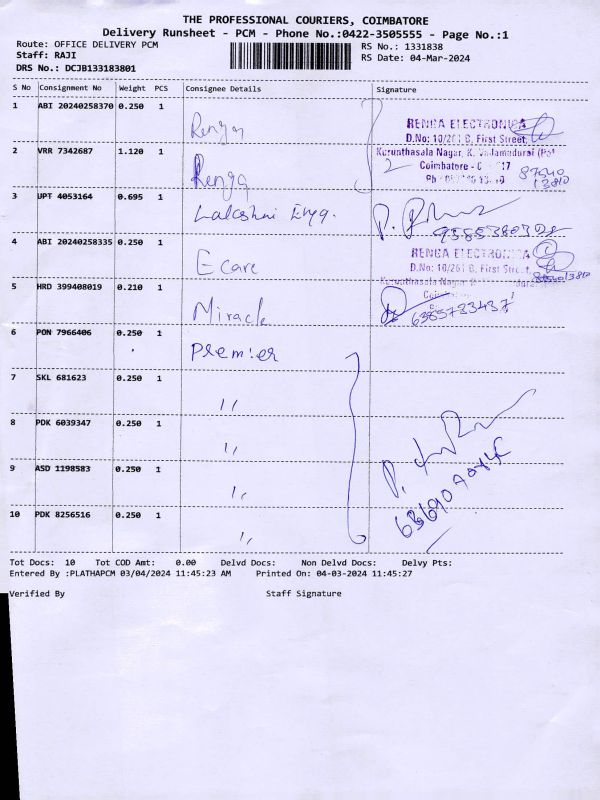 THE PROFESSIONAL COURIERS, COIMBATORE
Delivery Runsheet - PCM - Phone No.:0422-3505555 - Page No.:1
Route: OFFICE DELIVERY PCM RS No.: 1331838
Staff: RAJI RS Date: 04-Mar-2024
DRS No.: DCJB133183801
S No Consignment No Weight PCS Consignee Details Signature
1 ABI 20240258370 0.250 1 Renga
RENGA ELECTRONICA
D.No: 10/261 B, First Street,
2 VRR 7342687 1.120 1 Renga
Kurunthasala Nagar, K. Vadamadurai
Coimbatore
87540
13810
3 UPT 4053164 0.695 1 Lakshmi Engg.
4 ABI 20240258335 0.250 1 Ecare
RENGA ELECTRONICA
D.No: 10/261 B, First Street,
5 HRD 399408019 0.210 1 Miracle
6385733437
6 PON 7966406 0.250 1 Premier
7 SKL 681623 0.250 1 ,,
8 PDK 6039347 0.250 1 ,,
9 ASD 1198583 0.250 1 ,,
10 PDK 8256516 0.250 1 ,,
Tot Docs: 10 Tot COD Amt: 0.00 Delvd Docs: Non Delvd Docs: Delvy Pts:
Entered By :PLATHAPCM 03/04/2024 11:45:23 AM Printed On: 04-03-2024 11:45:27
Verified By Staff Signature